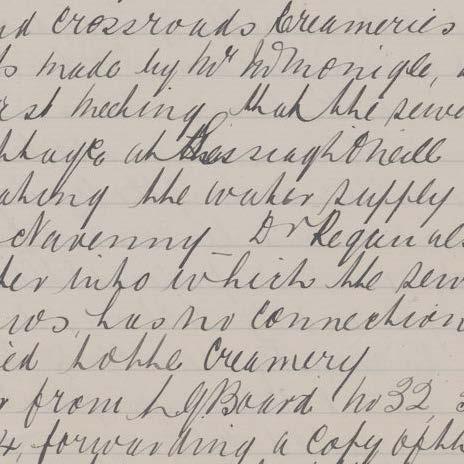 nd Crossroads Creameries
s made by Mr McMonigle,
rst Meeting that the sewe
ttage at Passiaght Oneill
ating the water supply
Navenny Dr Regan als
ter into which the sew
ws, has no connection
ied to the Creamery
r from L G Board No 32,
4, forwarding a copy of th